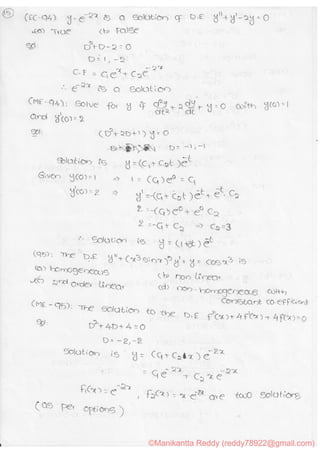 15
(EC-94) y = e^-2x is a solution of D.E y'' + y' - 2y = 0
(a) True (b) False
sol: D² + D - 2 = 0
D = 1, -2
C.F = C₁e^x + C₂e^-2x
∴ e^-2x is a solution
(ME-94): Solve for y if d²y/dt² + 2 dy/dt + y = 0 with y(0) = 1
and y'(0) = 2
sol: (D² + 2D + 1) y = 0
D = -1, -1
Solution is y = (C₁ + C₂t) e^-t
Given y(0) = 1 ⇒ 1 = (C₁) e⁰ = C₁
y'(0) = 2 ⇒ y' = -(C₁ + C₂t) e^-t + e^-t. C₂
2 = -(C₁) e⁰ + e⁰ C₂
2 = -C₁ + C₂ ⇒ C₂ = 3
∴ Solution is
(95): The D.E y'' + (x³ sin x)⁵ y' + y = cos x³ is
(a) homogeneous (b) non linear
(c) 2nd order linear (d) non-homogeneous with
constant co-efficient
(ME-95): The solution to the D.E f''(x) + 4f'(x) + 4f(x) = 0
sol: D² + 4D + 4 = 0
D = -2, -2
Solution is y = (C₁ + C₂x) e^-2x
= C₁e^-2x + C₂xe^-2x
f₁(x) = e^-2x, f₂(x) = x e^-2x are two solutions
(as per options)
©Manikantta Reddy (reddy78922@gmail.com)